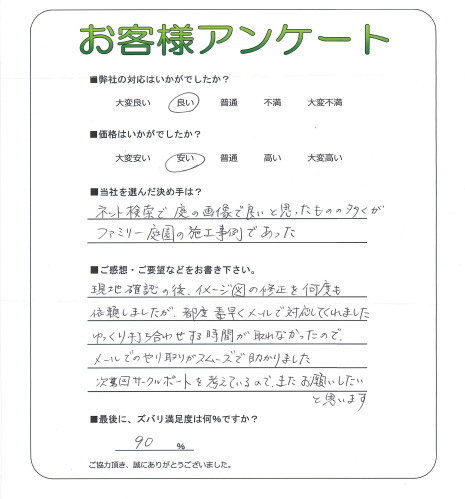 お客様アンケート
■弊社の対応はいかがでしたか？
大変良い 良い 普通 不満 大変不満
■価格はいかがでしたか？
大変安い 安い 普通 高い 大変高い
■当社を選んだ決め手は？
ネット検索で庭の画像で良いと思ったものの多くが
ファミリー庭園の施工事例であった
■ご感想・ご要望などをお書き下さい。
現地確認の後、イメージ図の修正を何度も
依頼しましたが、都度素早くメールで対応してくれました
ゆっくり打ち合わせする時間が取れなかったので、
メールでのやり取りがスムーズで助かりました
次回サークルポートを考えているので、またお願いしたい
と思います
■最後に、ズバリ満足度は何%ですか？
90 %
ご協力頂き、誠にありがとうございました。